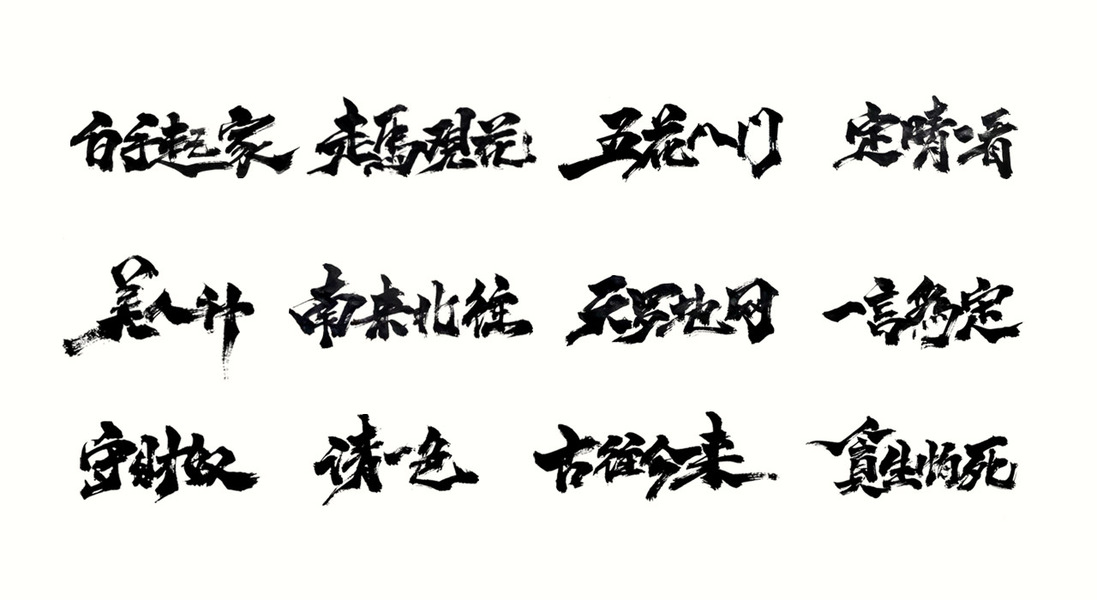 白手起家 走馬覌花 五花八门 定睛一看
美人计 南来北往 天罗地网 一言為定
守财奴 清一色 古往今来 貪生怕死